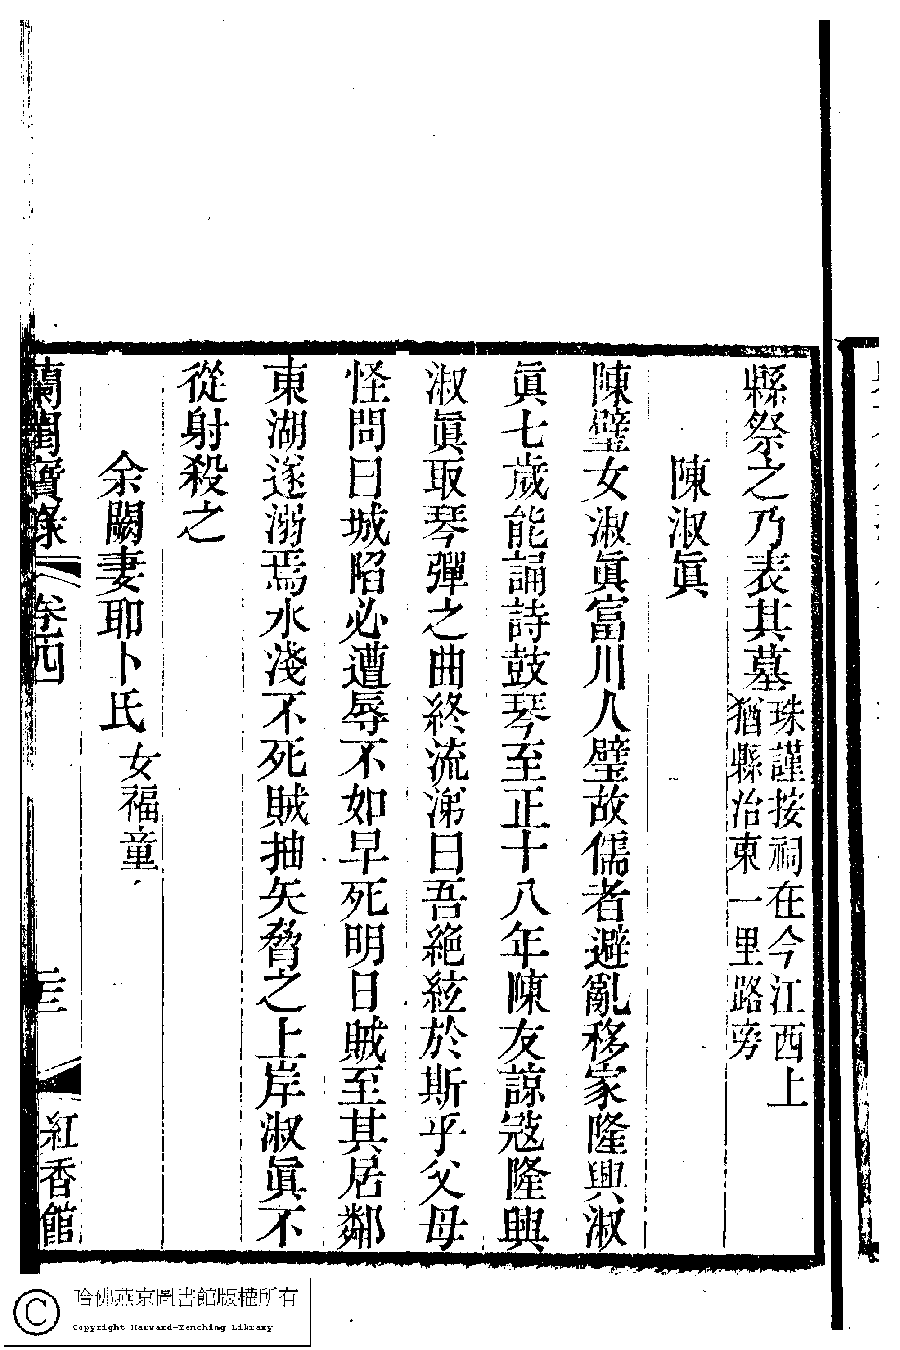 縣祭之乃表其墓珠謹按祠在今江西上
猶縣治東一里路旁
陳淑眞
陳璧女淑眞富川人璧故儒者避亂移家隆興淑
眞七歲能誦詩鼓琴至正十八年陳友諒寇隆興
淑眞取琴彈之曲終流涕曰吾絶絃於斯乎父母
怪問曰城陷必遭辱不如早死明日賊至其居鄰
東湖遂溺焉水淺不死賊抽矢脅之上岸淑眞不
從射殺之
余闕妻耶卜氏女福童
蘭閨寶錄 卷四 二三 紅香館
哈佛燕京圖書館版權所有
Copyright Harvard-Yenching Library